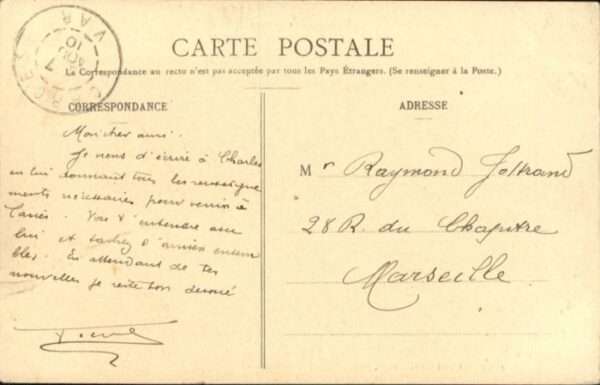 CARTE POSTALE
La Correspondance au recto n'est pas acceptée par tous les Pays Étrangers. (Se renseigner à la Poste.)
CORRESPONDANCE
Mon cher ami.
Je viens d'écrire à Charles
en lui donnant tous les renseigne
ments nécessaires pour venir à
Vois t'entendre avec
lui et d'arriver ensem
bles. En attendant de tes
nouvelles je reste ton dévoué
ADRESSE
Mr Raymond
28 R. du Chapitre
Marseille
VAR
7
10